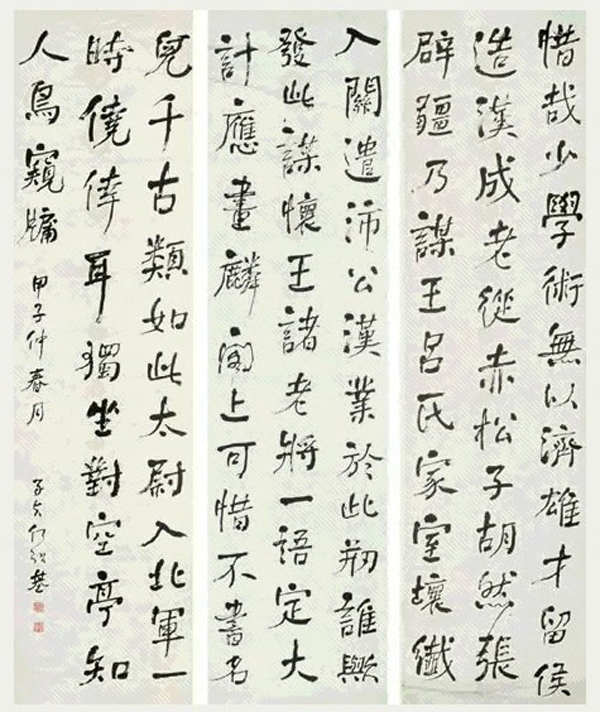 惜哉少學術無以濟雄才留侯
造漢成老從赤松子胡然張
辟疆乃謀王呂氏家室壞纖
入關遣沛公漢業於此剏誰歟
發此謀懷王諸老將一語定大
計應畫麟閣上可惜不書名
兒千古類如此太尉入北軍一
時僥倖耳獨坐對空亭知
人鳥窺牖
甲子仲春月
子貞何紹基